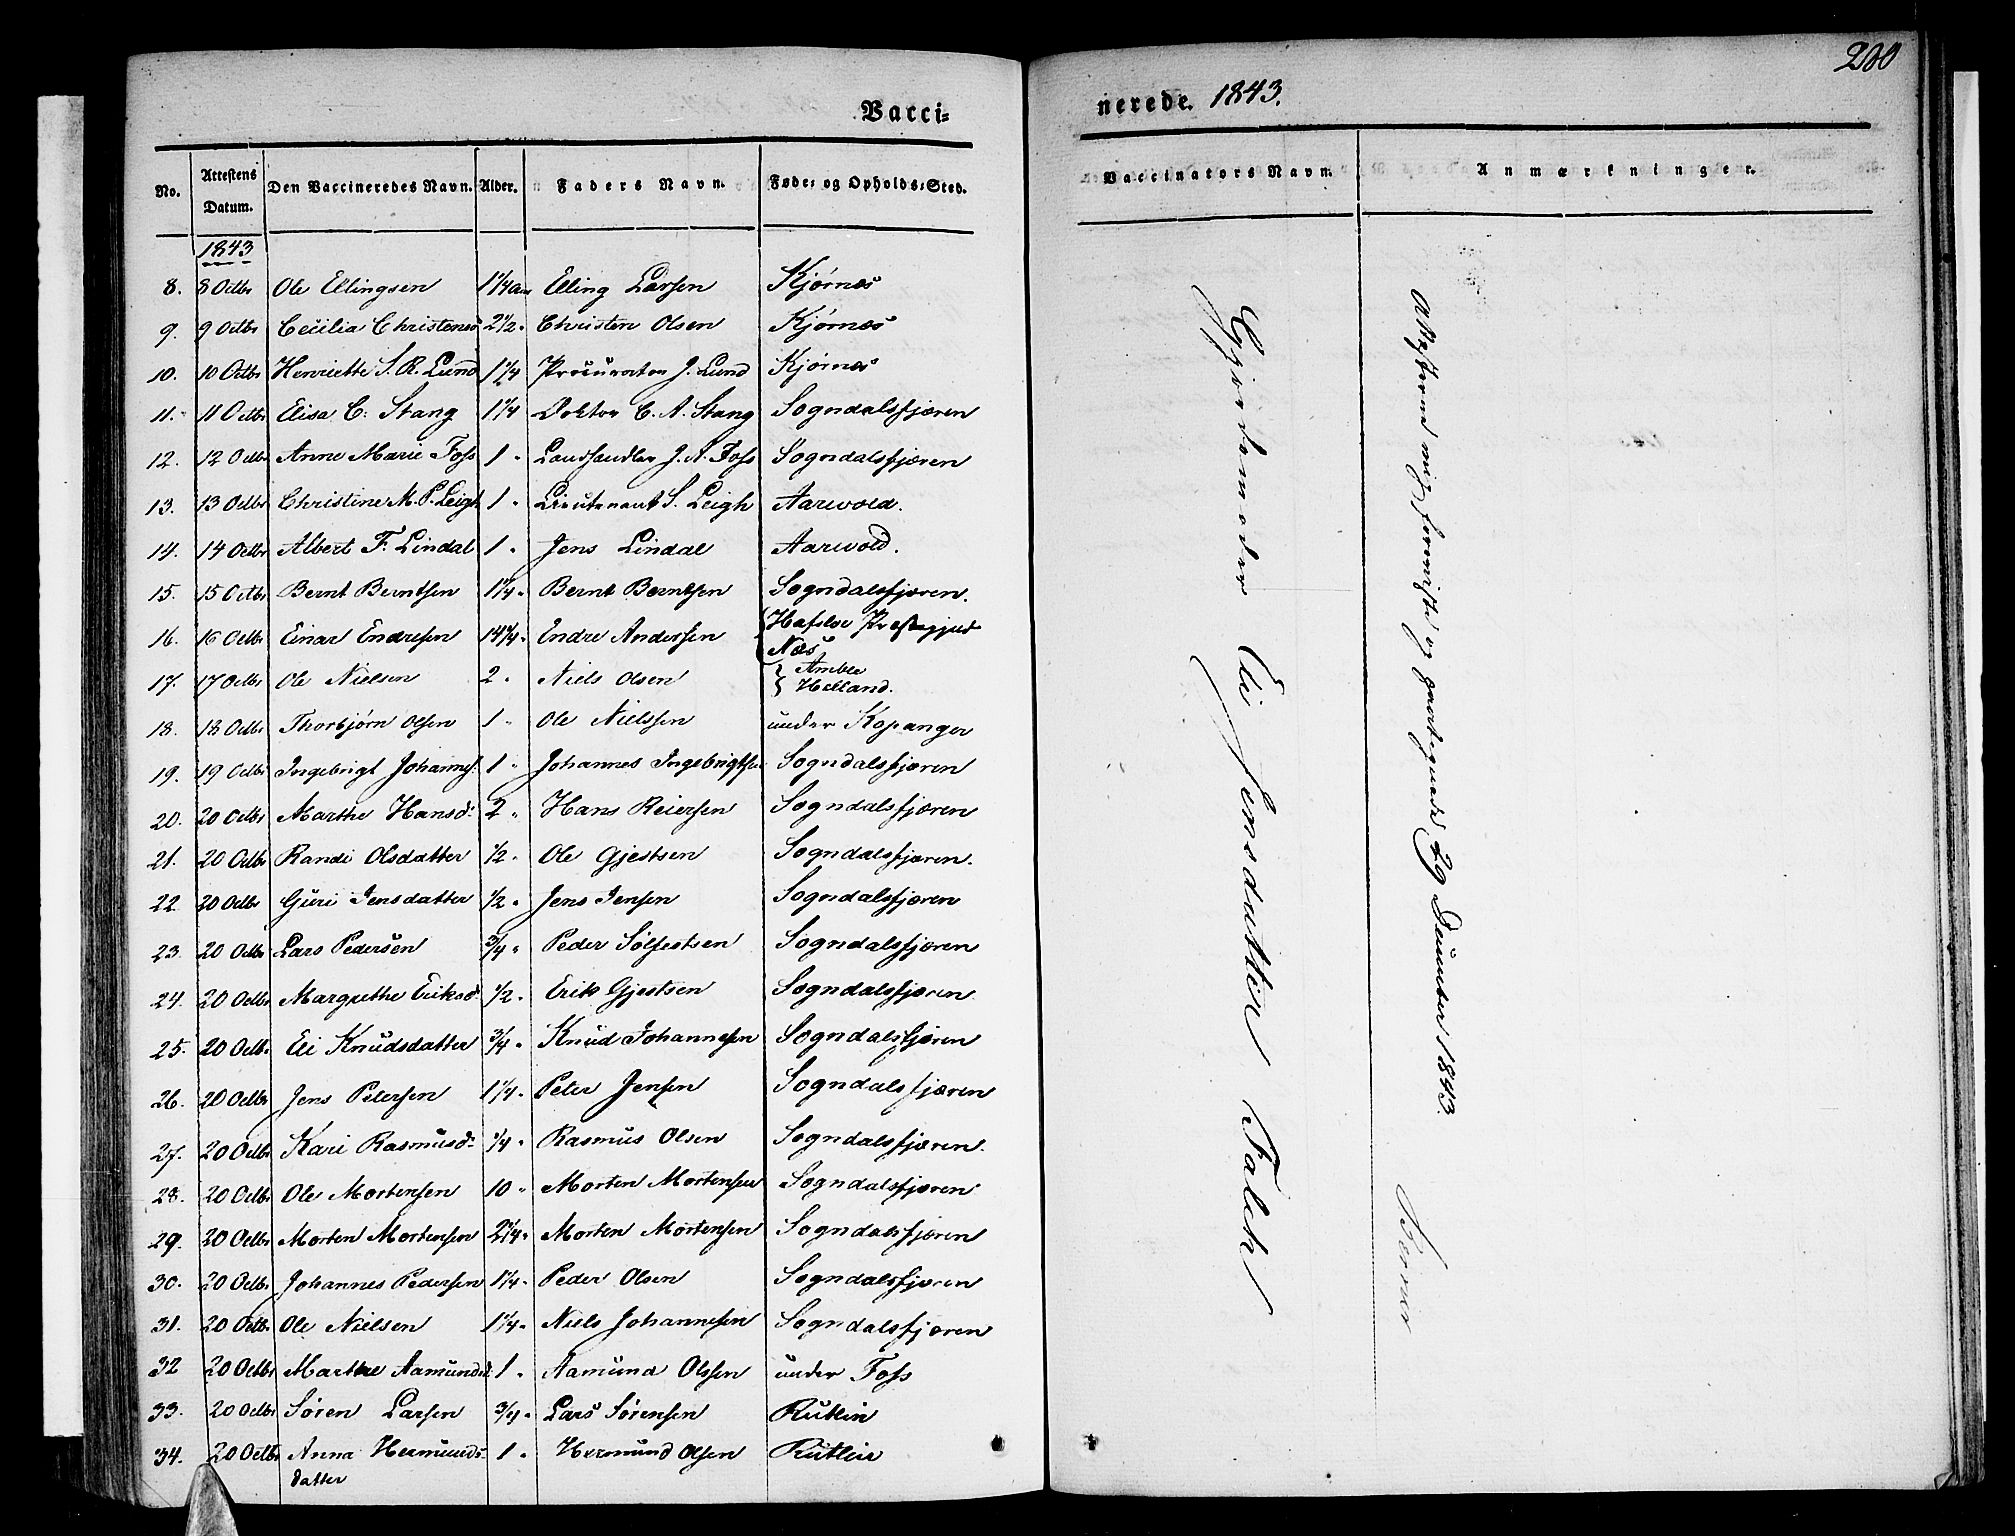 Vacci=
nerede. 1843.
200
No. Attestens Datum. Den Vaccineredes Navn. Alder. Faders Navn. Føde= og Opholds=Sted. Vaccinators Navn. Anmærkninger.
1843
8. 8 Octbr Ole Ellingsen 1 1/4 Elling Larsen Kjørnæs
9. 9 Octbr Cecilia Christensd 2 1/2 " Christen Olsen Kjørnæs
10. 10 Octbr Henriette S. R. Lund Procurator J. Lund Kjørnæs
11. 11 Octbr Elisa C. Stang 1 1/4 Doktor C. A. Stang Sogndalsfjæren
12. 12 Octbr Anne Marie Foss 1 " Landhandler J. A. Foss Sogndalsfjæren
13. 13 Octbr Christine M. P. Leigh 1 " Lieutenant S. Leigh Aarvold.
14. 14 Octbr Albert F. Lindal 1 " Jens Lindal Aarvold.
15. 15 Octbr Bernt Berntsen 1 1/4 " Bernt Berntsen Sogndalsfjæren.
16. 16 Octbr Einar Endresen Endre Andersen Hafsloe Præstegjeld Næs
17. 17 Octbr Ole Nielsen 2 " Niels Olsen Amble Helland.
18. 18 Octbr Thorbjørn Olsen 1 " Ole Nielssen under Kopanger
19. 19 Octbr Ingebrigt Johannes. 1 " Johannes Ingebrigtsen Sogndalsfjæren
20. 20 Octbr Marthe Hansd. 2 " Hans Reiersen Sogndalsfjæren
21. 20 Octbr Randi Olsdatter 1/2 " Ole Gjestsen Sogndalsfjæren.
22 20 Octbr Guri Jensdatter 1/2 " Jens Jensen Sogndalsfjæren
23. 20 Octbr Lars Pedersen 3/4 " Peder Sølfestsen Sogndalsfjæren
24. 20 Octbr Margrethe Eriksd. 1/2 " Erik Gjestsen Sogndalsfjæren
25. 20 Octb. Eli Knudsdatter 3/4 " Knud Johannesen Sogndalsfjæren
26. 20 Octbr Jens Petersen 1 1/4 " Peter Jensen Sogndalsfjæren
27. 20 Octbr Kari Rasmusd. 1/4 " Rasmus Olsen Sogndalsfjæren.
28. 20 Octbr Ole Mortensen 10 " Morten Mortensen Sogndalsfjæren
29. 20 Octbr Morten Mortensen 2 1/4 " Morten Mortensen Sogndalsfjæren
30. 20 Octbr Johannes Pedersen 1 1/4 " Peder Olsen Sogndalsfjæren
31. 20 Octbr Ole Nielsen 1 1/4 " Niels Johannesen Sogndalsfjæren
32 20 Octbr Marthe Aamundsd. 1 " Aamund Olssen under Foss
33. 20 Octbr Søren Larsen 3/4 " Lars Sørensen Rutlin
34. 20 Octbr Anna Hermunds- 1 " Hermund Olsen Rutlin
datter
Gjordemoder Eli Jensdatter Falch
Attesterend mig foreviste og paategnede 29 December 1843.